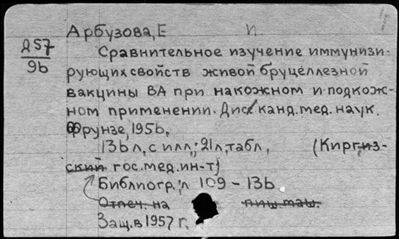 Арбузова, Е И.
Д57
9б
Сравнительное изучение иммунизи-
рующих свойств живой бруцеллезной
вакцины ВА при накожном и подкож-
ном применении. Дис канд. мед. наук.
Фрунзе, 1956,
136 л, с илл.; 21 л, табл, (Киргиз-
ский гос. мед. ин-т)
Библиогр.: л 109 - 136
Отпеч. на пиш. маш.
Защ. в 1957 г.